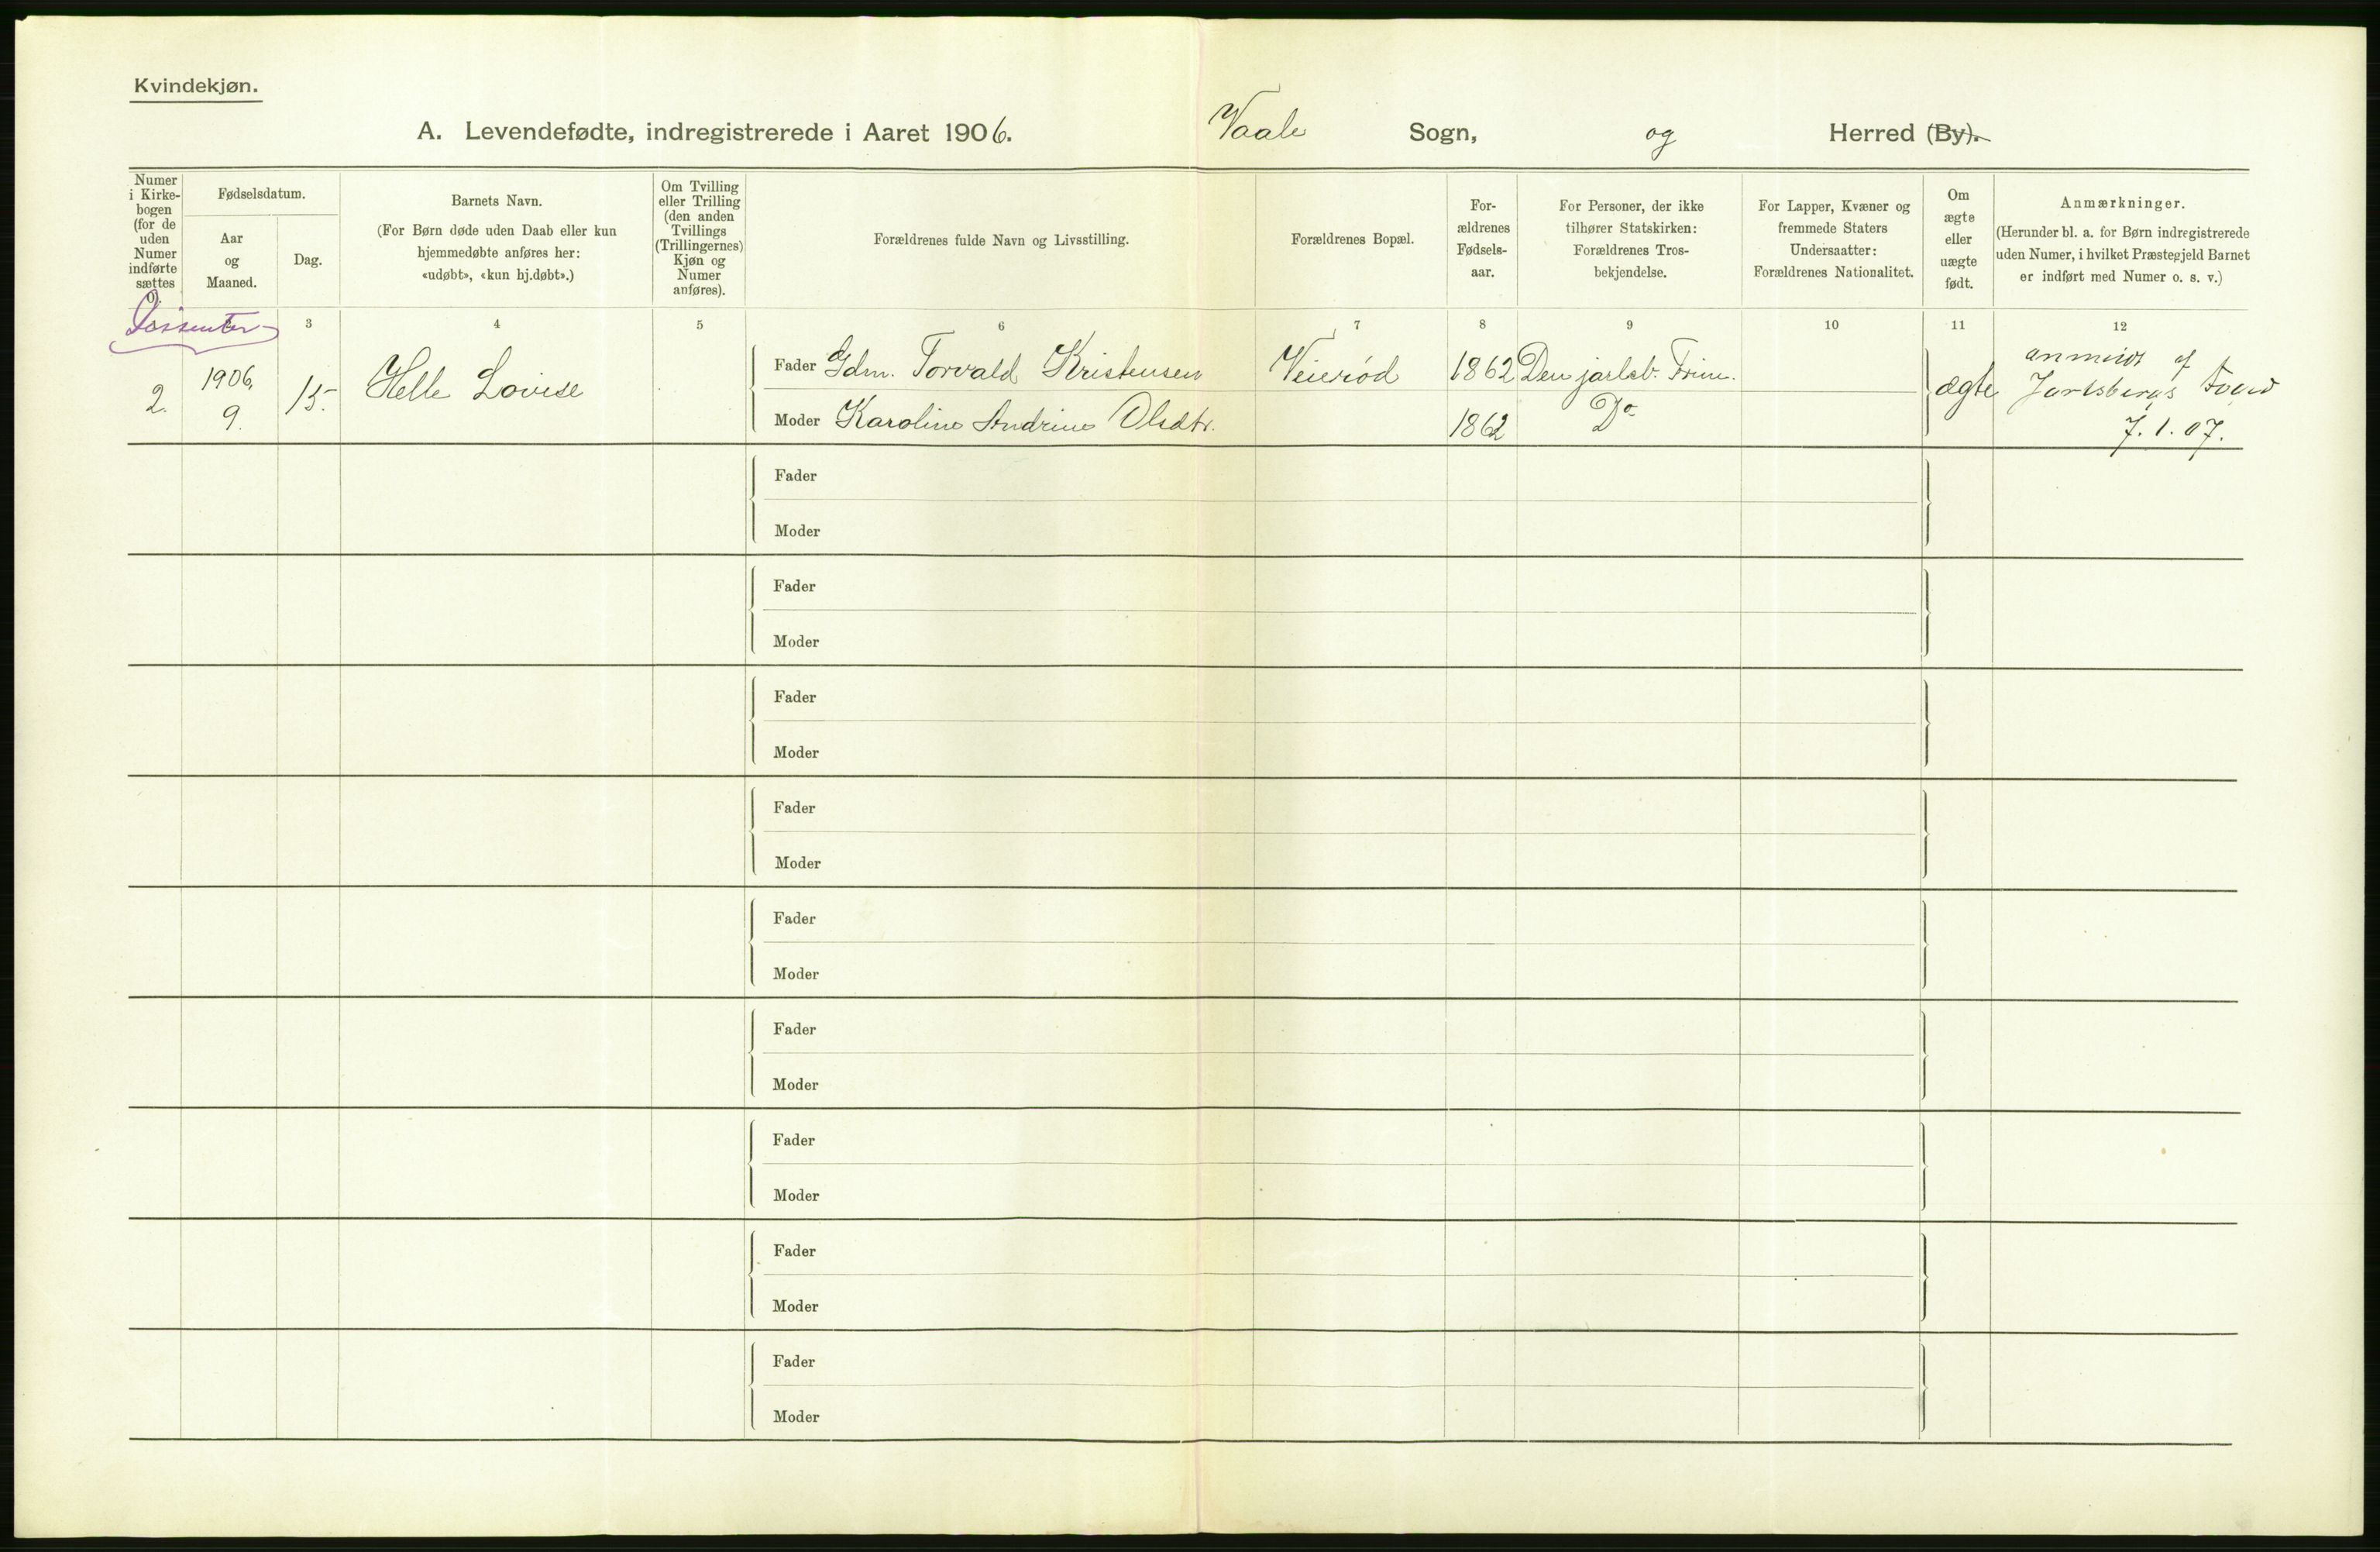 Kvindekjøn.
A. Levendefødte, indregistrerede i Aaret 1906. Vaale Sogn, og Herred (By).
Numer i Kirkebogen (for de uden Numer indførte sættes 0).
Fødselsdatum.
Aar og Maaned.
Dag.
Barnets Navn.
(For Børn døde uden Daab eller kun
hjemmedøbte anføres her:
«udøbt», «kun hj.døbt».)
Om Tvilling
eller Trilling
(den anden
Tvillings
(Trillingernes)
Kjøn og
Numer
anføres).
Forældrenes fulde Navn og Livsstilling.
Forældrenes Bopæl.
For-
ældrenes
Fødsels-
aar.
For Personer, der ikke
tilhører Statskirken:
Forældrenes Tros-
bekjendelse.
For Lapper, Kvæner og
fremmede Staters
Undersaatter:
Forældrenes Nationalitet.
Om
ægte
eller
uægte
født.
Anmærkninger.
(Herunder bl. a. for Børn indregistrerede
uden Numer, i hvilket Præstegjeld Barnet
er indført med Numer o. s. v.)
Dissenter 3 4 5 6 7 8 9 10 11 12
2. 1906, 9. 15. Helle Lovise
Fader Gdm. Torvald Kristensen Veierød 1862 Den jarlsb. Frim.
Moder Karoline Andrine Olsdtr. 1862 Do
ægte
anmeldt af
Jarlsbergs Foged
7.1.07.
Fader
Moder
Fader
Moder
Fader
Moder
Fader
Moder
Fader
Moder
Fader
Moder
Fader
Moder
Fader
Moder
Fader
Moder